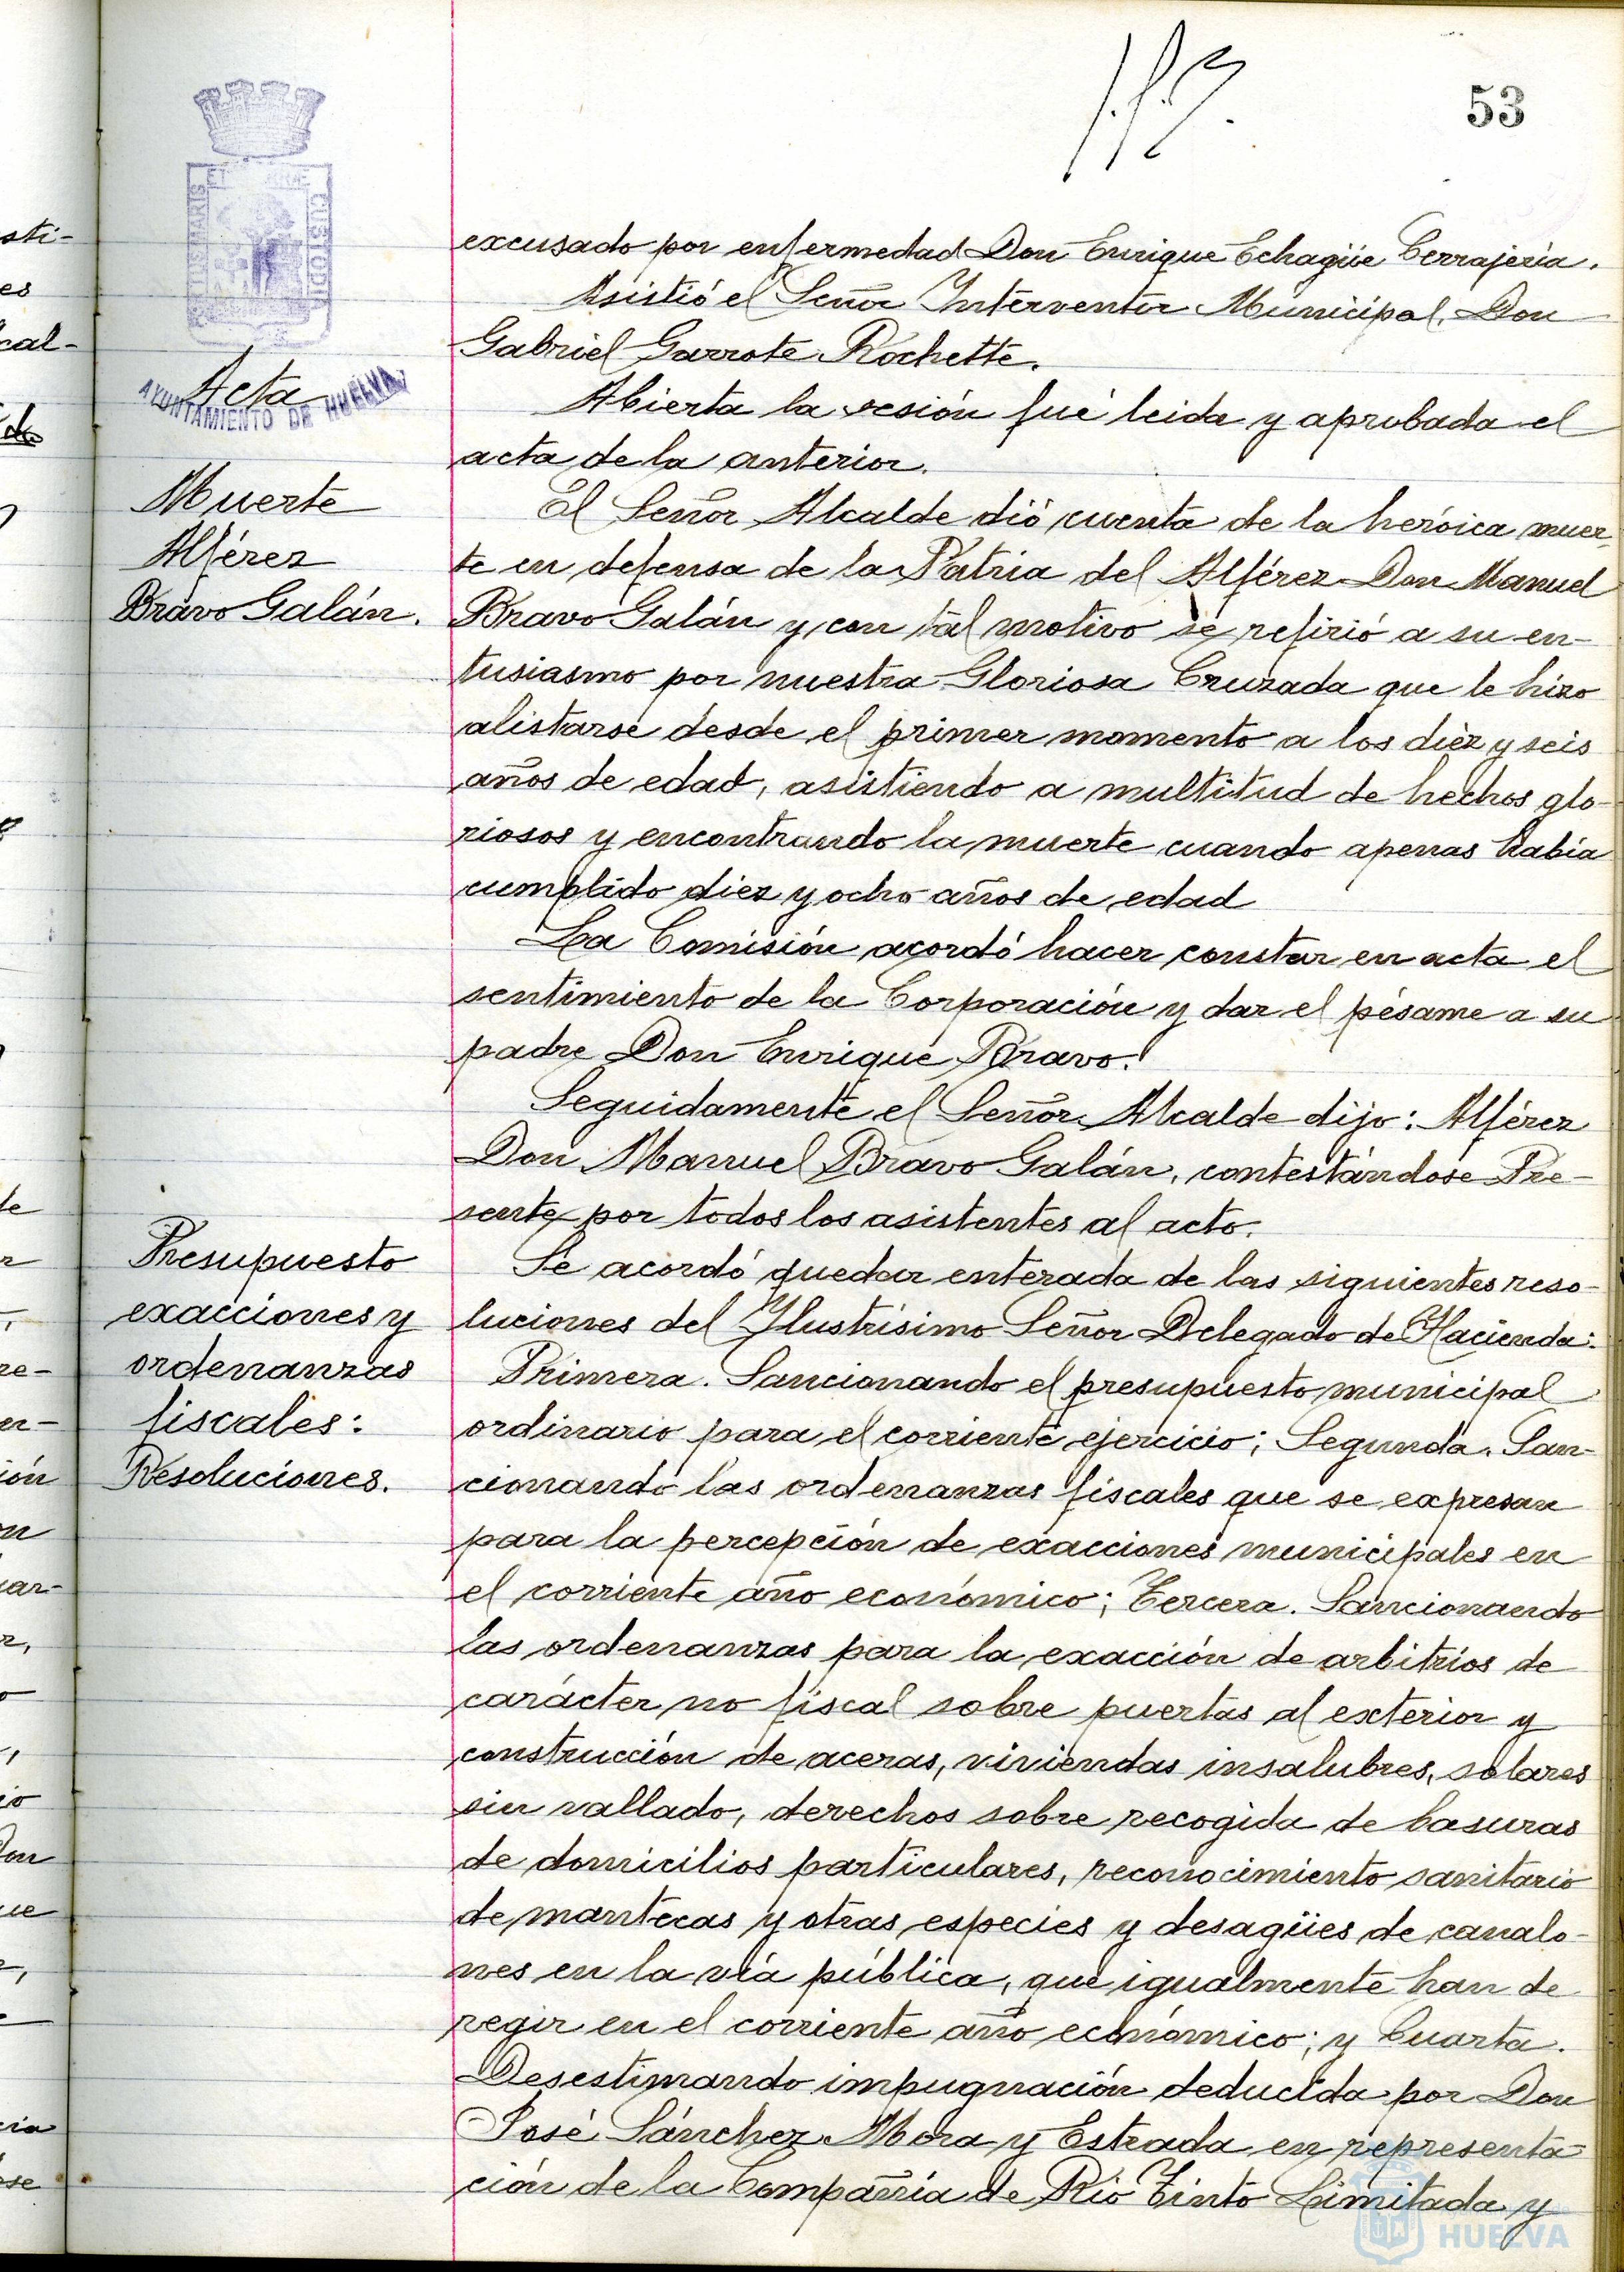 53
excusado por enfermedad Don Enrique Echagüe Cerrajería.
Asistió el Señor Interventor Municipal, Don
Gabriel Garrote Rochette.
Acta
AYUNTAMIENTO DE HUELVA
Abierta la sesión fué leida y aprobada el
acta de la anterior.
Muerte
Alférez
Bravo Galán.
El Señor Alcalde dió cuenta de la heróica muer-
te en defensa de la Patria del Alférez Don Manuel
Bravo Galán y con tal motivo se refirió a su en-
tusiasmo por nuestra Gloriosa Cruzada que le hizo
alistarse desde el primer momento a los diez y seis
años de edad, asistiendo a multitud de hechos glo-
riosos y encontrando la muerte cuando apenas había
cumplido diez y ocho años de edad
La Comisión acordó hacer constar en acta el
sentimiento de la Corporación y dar el pésame a su
padre Don Enrique Bravo.
Seguidamente el Señor Alcalde dijo: Alférez
Don Manuel Bravo Galán, contestándose Pre-
sente por todos los asistentes al acto.
Presupuesto
exacciones y
ordenanzas
fiscales:
Resoluciones.
Se acordó quedar enterada de las siguientes reso-
luciones del Ylustrísimo Señor Delegado de Hacienda:
Primera. Sancionando el presupuesto municipal
ordinario para el corriente ejercicio; Segunda. San-
cionando las ordenanzas fiscales que se expresan
para la percepción de exacciones municipales en
el corriente año económico; Tercera. Sancionando
las ordenanzas para la exacción de arbitrios de
carácter no fiscal sobre puertas al exterior y
construcción de aceras, viviendas insalubres, solares
sin vallado, derechos sobre recogida de basuras
de domicilios particulares, reconocimiento sanitario
de mantecas y otras especies y desagües de canalo-
nes en la vía pública, que igualmente han de
regir en el corriente año económico; y Cuarta.
Desestimando impugnación deducida por Don
José Sánchez Mora y Estrada en representa-
ción de la Compañía de Rio Tinto Limitada y
HUELVA